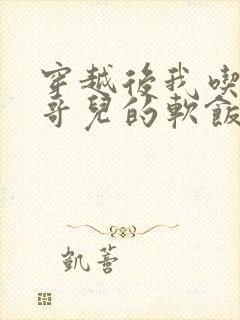 穿越後我喫
哥兒的軟飯
凱薈